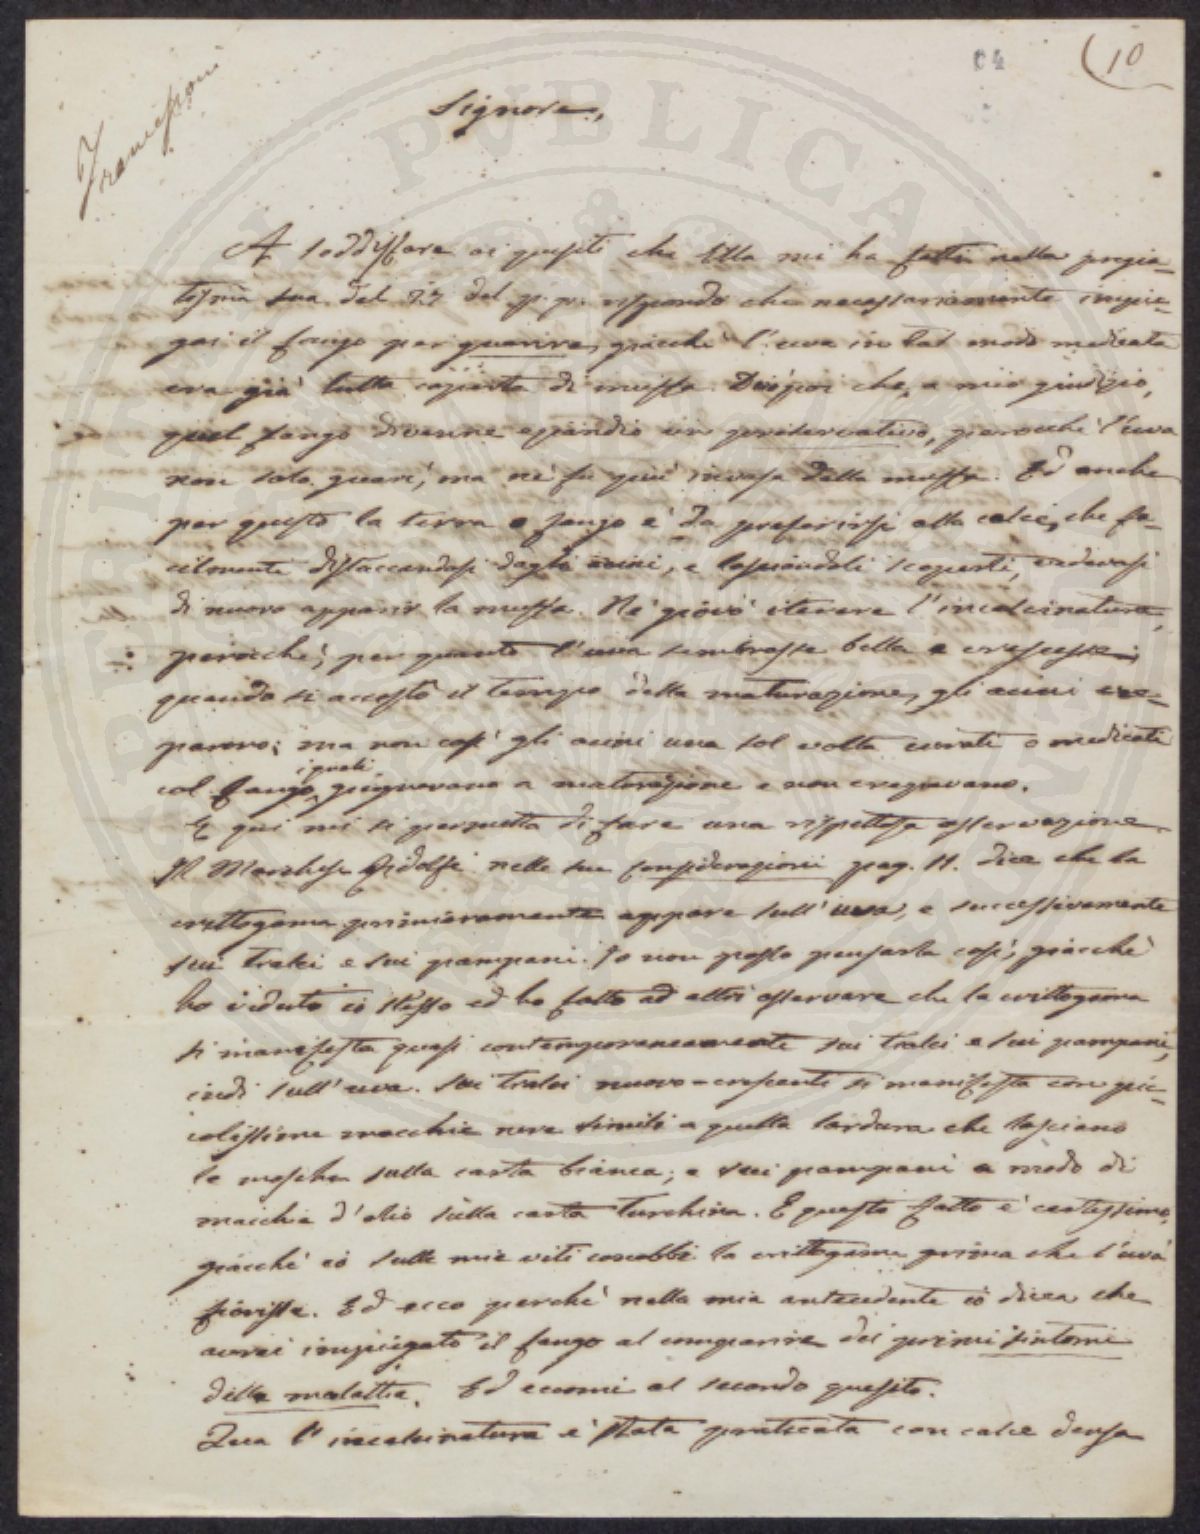 04
(10
Francesconi
Signore,
A soddisfare ai quesiti che Ella mi ha fatti nella pregia-
tissima sua del 27 del p. p. rispondo che necessariamente impie-
gai il fango per guarire, giacchè l'uva in tal modo medicata
era già tutta coperta di muffa. Dirò poi che, a mio giudizio,
quel fango divenne eziandio un preservativo, perocchè l'uva
non solo guarì, ma nè fu più invasa dalla muffa. Ed anche
per questo la terra o fango è da preferirsi alla calce, che fa-
cilmente distaccandosi dagli acini, e lasciandoli scoperti, vedevasi
di nuovo apparir la muffa. Nè giovò iterare l'incalcinatura,
perocchè, per quanto l'uva sembrasse bella e crescesse,
quando si accostò il tempo della maturazione, gli acini cre-
parono; ma non così gli acini una sol volta curati o medicati
col fango, i quali giugnevano a maturazione e non crepavano.
E qui mi si permetta di fare una rispettosa osservazione.
Il Marchese Ridolfi nelle sue Considerazioni pag. 11. dice che la
crittogama primieramente appare sull'uva, e successivamente
sui tralci e sui pampani. Io non posso pensarla così, giacchè
ho veduto io stesso ed ho fatto ad altri osservare che la crittogama
si manifesta quasi contemporaneamente sui tralci e sui pampani,
indi sull'uva. Sui tralci nuovo-crescenti si manifesta con pic-
colissime macchie nere simili a quella lordura che lasciano
le mosche sulla carta bianca; e sui pampani a modo di
macchia d'olio sulla carta turchina. E questo fatto è certissimo,
giacchè io sulle mie viti conobbi la crittogama prima che l'uva
fiorisse. Ed ecco perchè nella mia antecedente io dicea che
avrei impiegato il fango al comparire dei primi sintomi
della malattia. Ed eccomi al secondo quesito.
Qua l'incalcinatura è stata praticata con calce densa